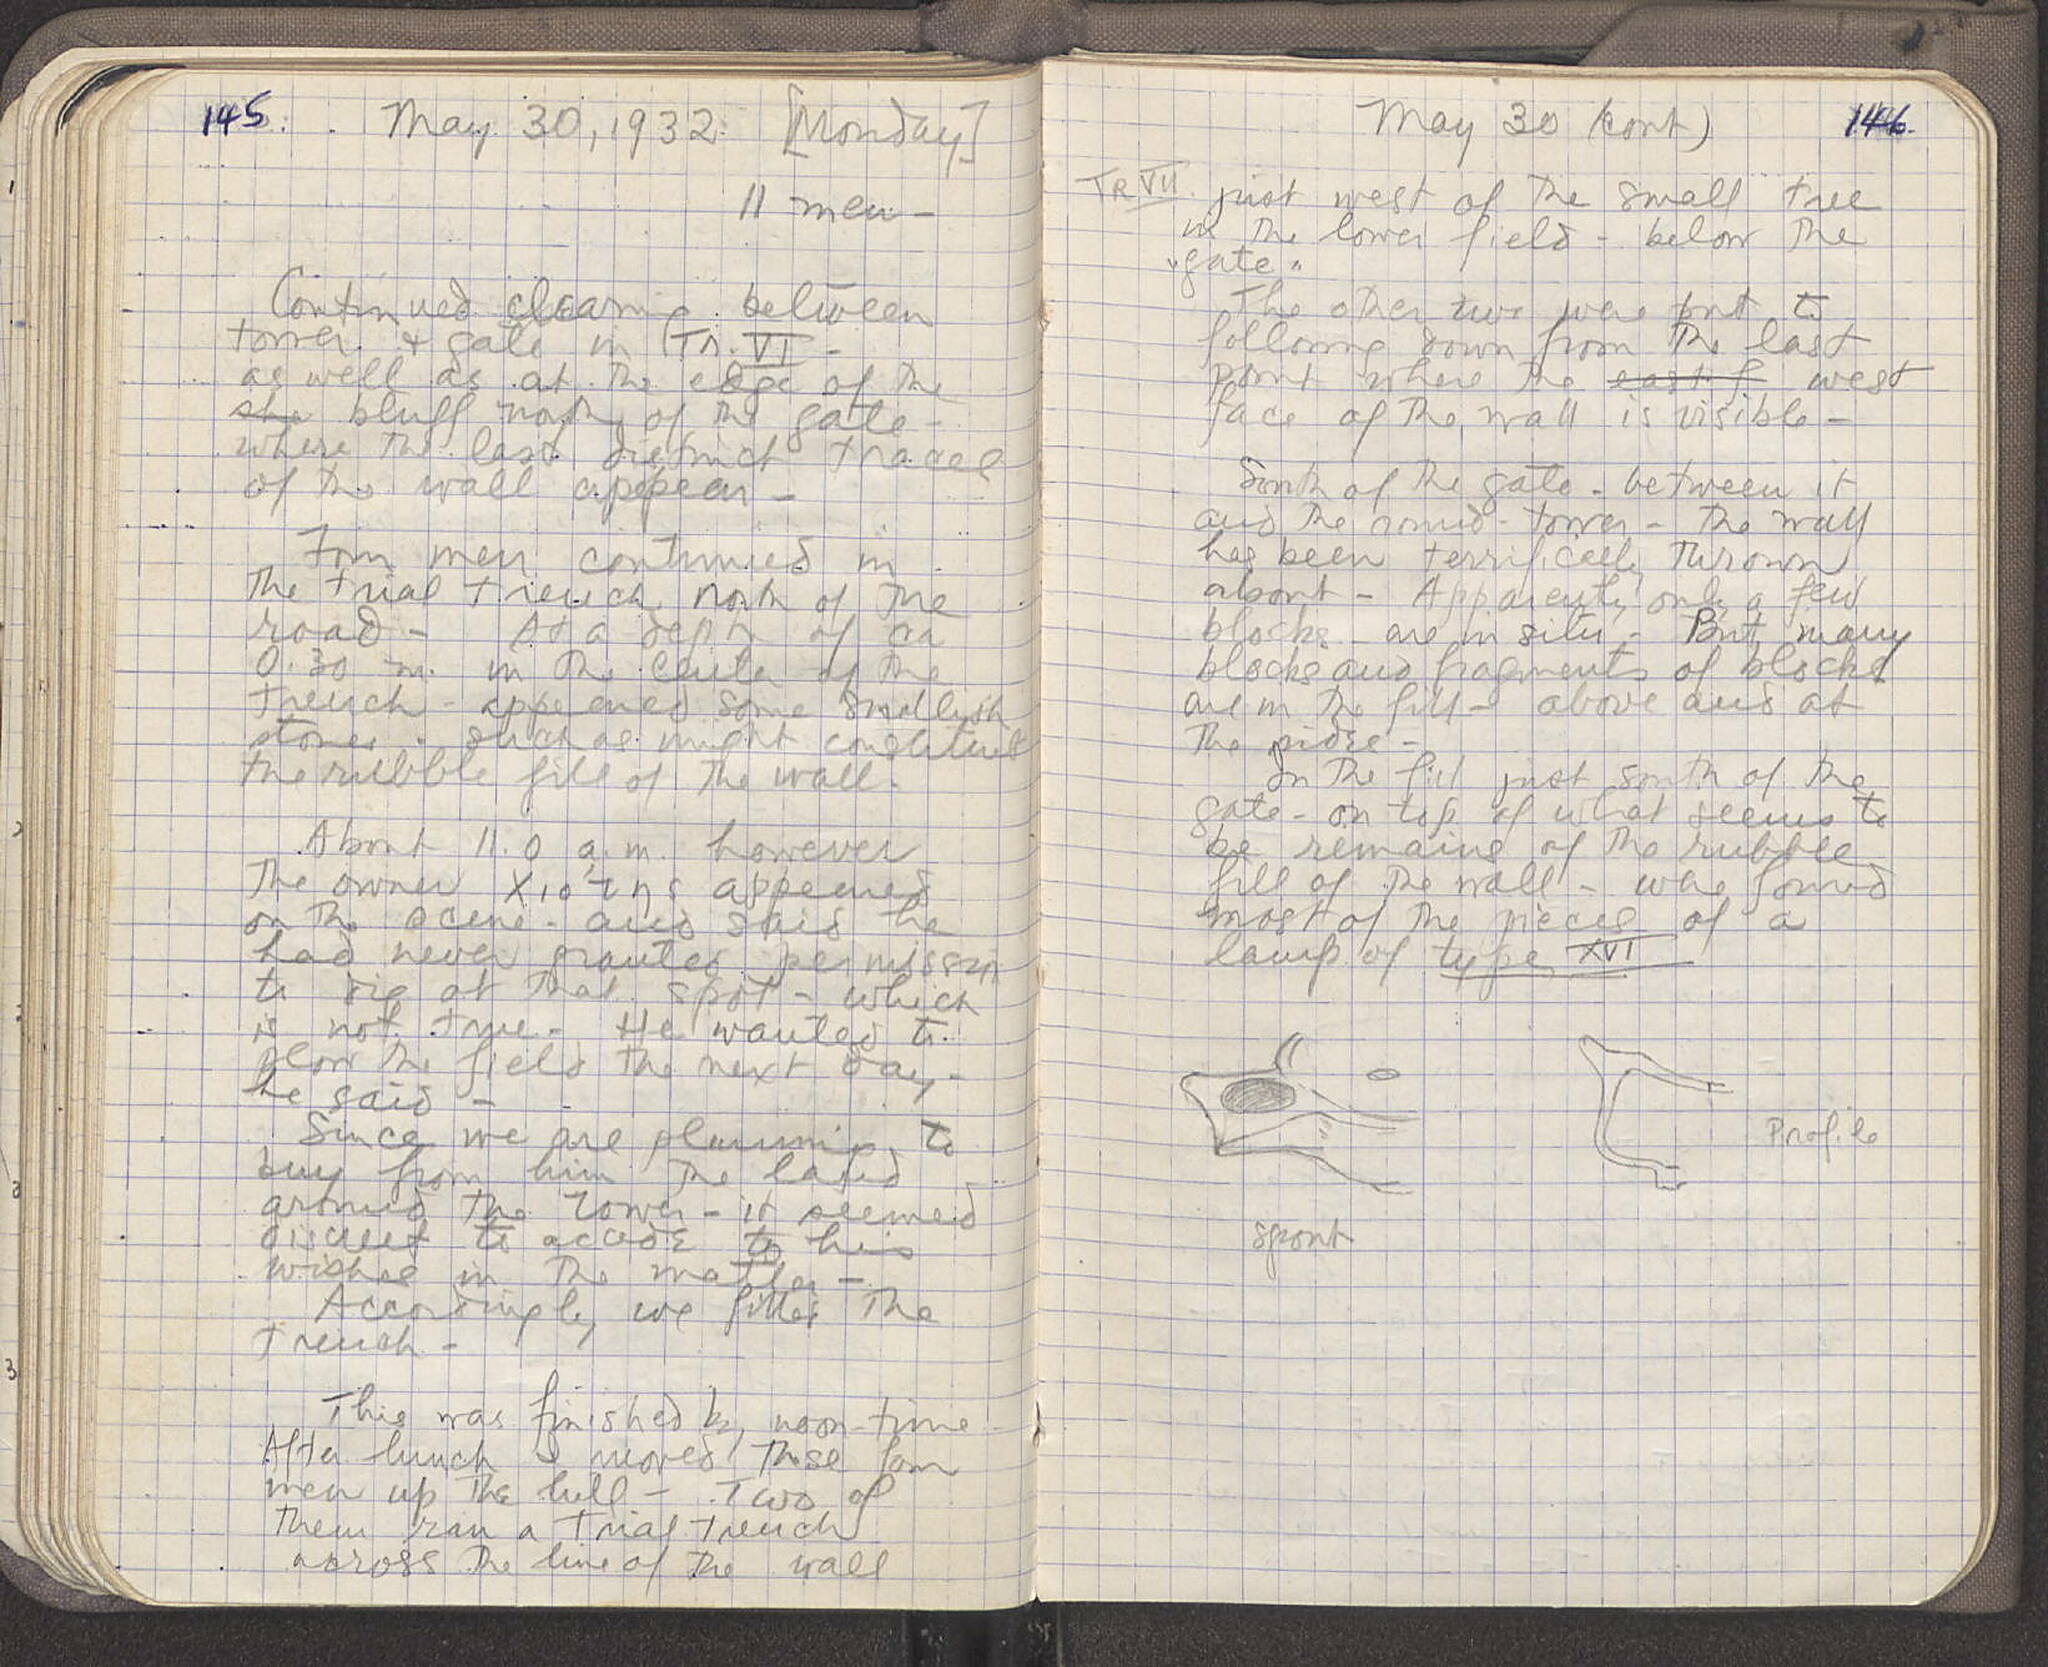 145. May 30, 1932. [Monday]
11 men -
Continued clearing between
tower & gate in Tr. VI -
as well as at the edge of the
bluff north of the gate -
where the last distinct traces
of the wall appear -
Four men continued in
the trial trench north of the
road - At a depth of ca
0.30 m. in the center of the
trench - appeared some smallish
stones - such as might constitute
the rubble fill of the wall.
About 11.0 a.m. however
the owner Χιότης appeared
on the scene - and said he
had never granted permission
to dig at that spot - which
is not true - He wanted to
plow the field the next day -
he said -
Since we are planning to
buy from him the land
around the tower - it seemed
discreet to accede to his
wishes in the matter -
Accordingly we filled the
trench -
This was finished by noon-time -
After lunch I moved these four
men up the hill - Two of
them ran a trial trench
across the line of the wall
May 30 (cont) 146.
Tr VII. just west of the small tree
in the lower field - below the
"gate"
The other two were put to
following down from the last
point where the east f west
face of the wall is visible -
South of the gate - between it
and the round-tower - the wall
has been terrifically thrown
about - Apparently only a few
blocks are in situ - But many
blocks and fragments of blocks
are in the fill - above and at
the sides -
In the fill just south of the
gate - on top of what seems to
be remains of the rubble
fill of the wall - were found
most of the pieces of a
lamp of type XVI
Profile
spout